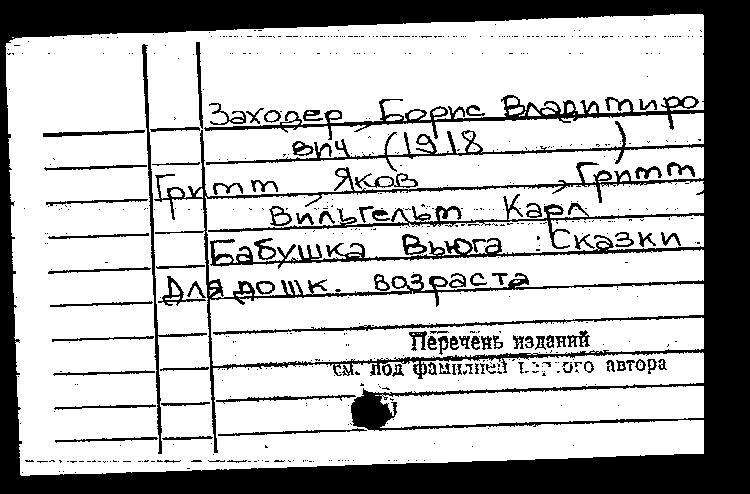 Заходер, Борис Владимиро
вич (1918 )
Гримм, Яков, Гримм,
Вильгельм Карл
Бабушка Вьюга : Сказки.
Для дошк. возраста
Перечень изданий
см. под фамилией первого автора